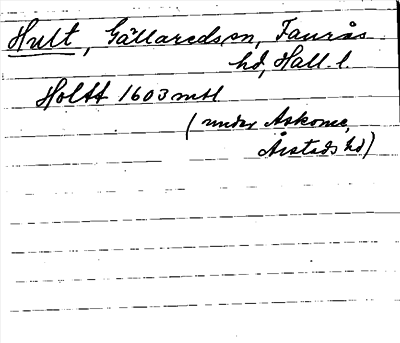 Hult, Gällareds sn, Faurås
hd, Hall. l.
Holtt 1603 mtl
(under Askome,
Årstads hd)